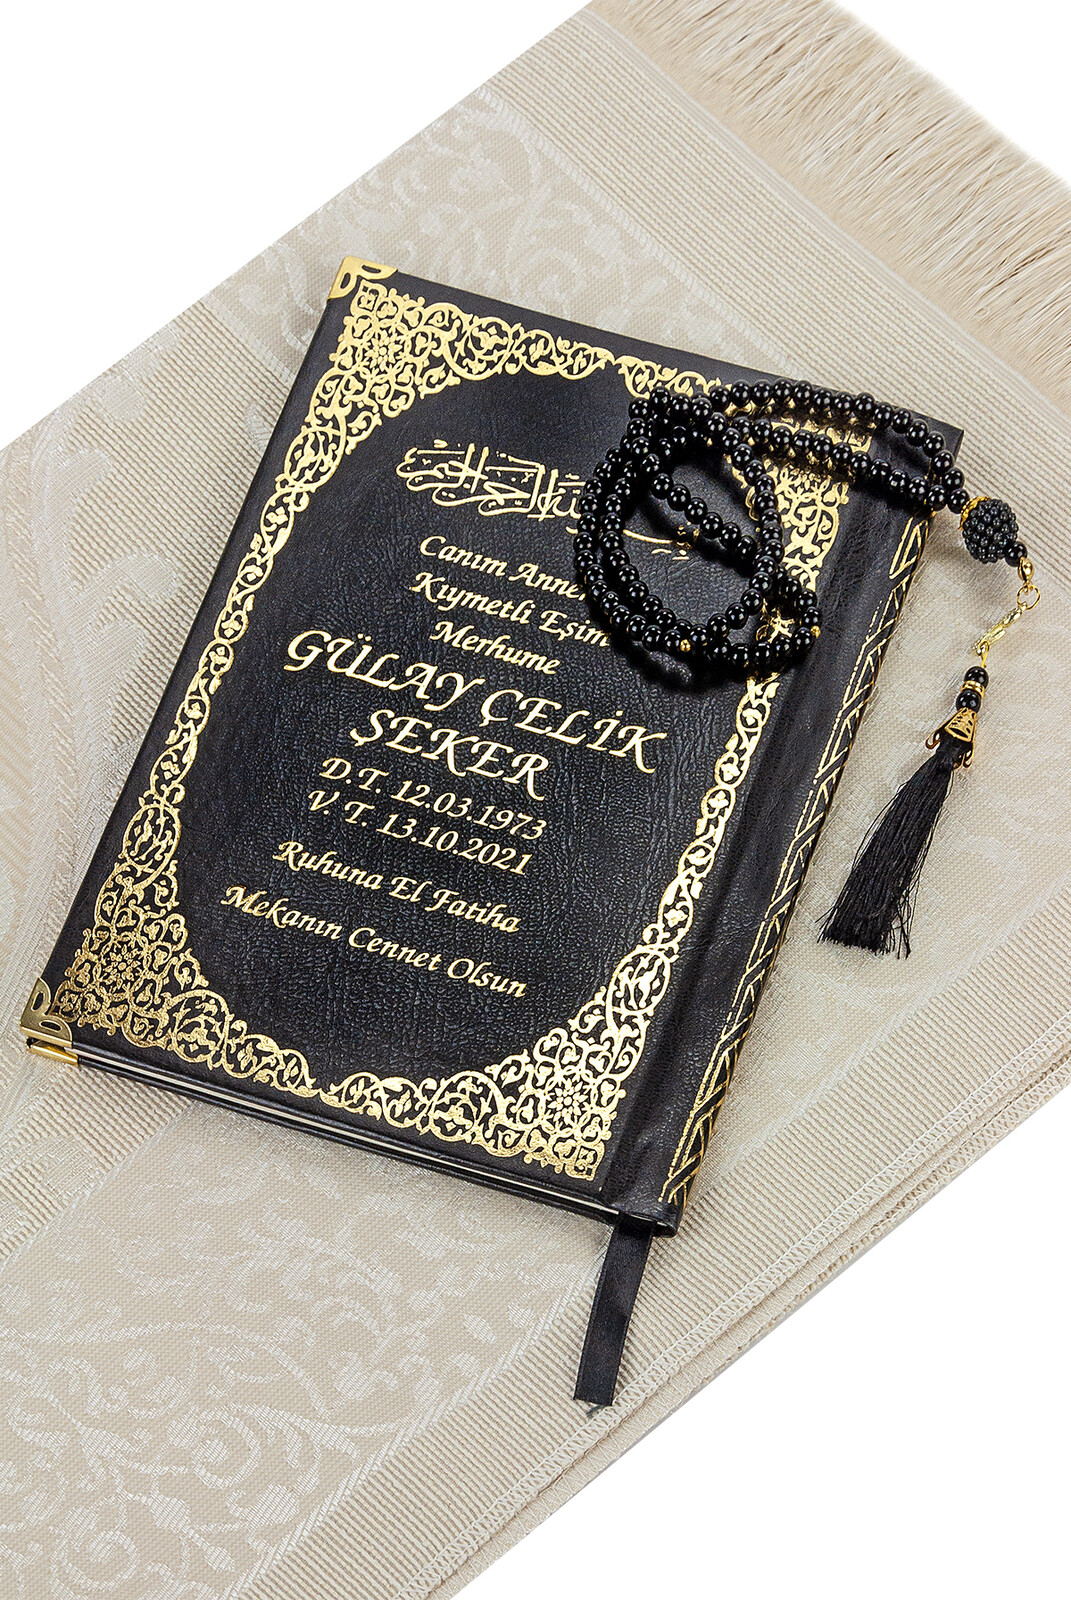 الله الرحمن الرحيم
Canım Anne
Kıymetli Eşim
Merhume
GÜLAY ÇELİK
ŞEKER
D.T. 12.03.1973
V. T. 13.10.2021
Ruhuna El Fatiha
Mekanın Cennet Olsun